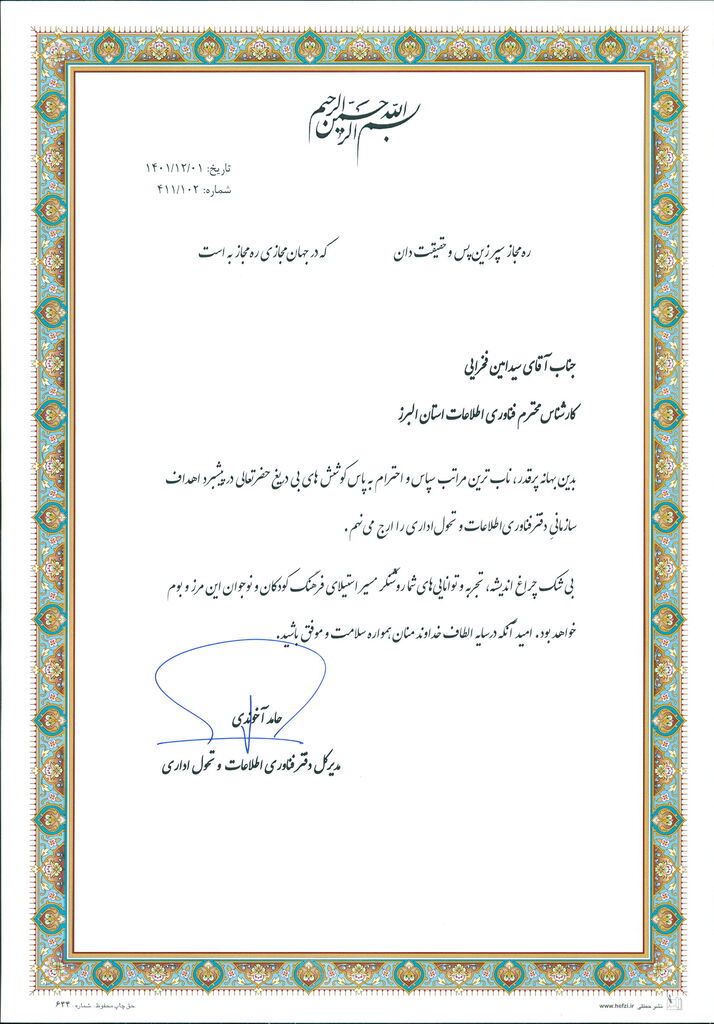 بسم الله الرحمن الرحیم
تاریخ: ۱۴۰۱/۱۲/۰۱
شماره: ۴۱۱/۱۰۲
ره مجاز سپر زین پس و حقیقت دان که در جهان مجازی ره مجاز به است
جناب آقای سید امین فخرایی
کارشناس محترم فناوری اطلاعات استان البرز
بدین بهانه پرقدر، ناب ترین مراتب سپاس و احترام به پاس کوشش های بی دریغ حضرتعالی در پیشبرد اهداف
سازمانیِ دفتر فناوری اطلاعات و تحول اداری را ارج می نهم.
بی شک چراغ اندیشه، تجربه و توانایی های شما روشنگر مسیر استیلای فرهنگ کودکان و نوجوان این مرز و بوم
خواهد بود. امید آنکه در سایه الطاف خداوند منان همواره سلامت و موفق باشید.
حامد آخوندی
مدیرکل دفتر فناوری اطلاعات و تحول اداری
نشر حفظی www.hefzi.ir
حق چاپ محفوظ. شماره ۶۴۴